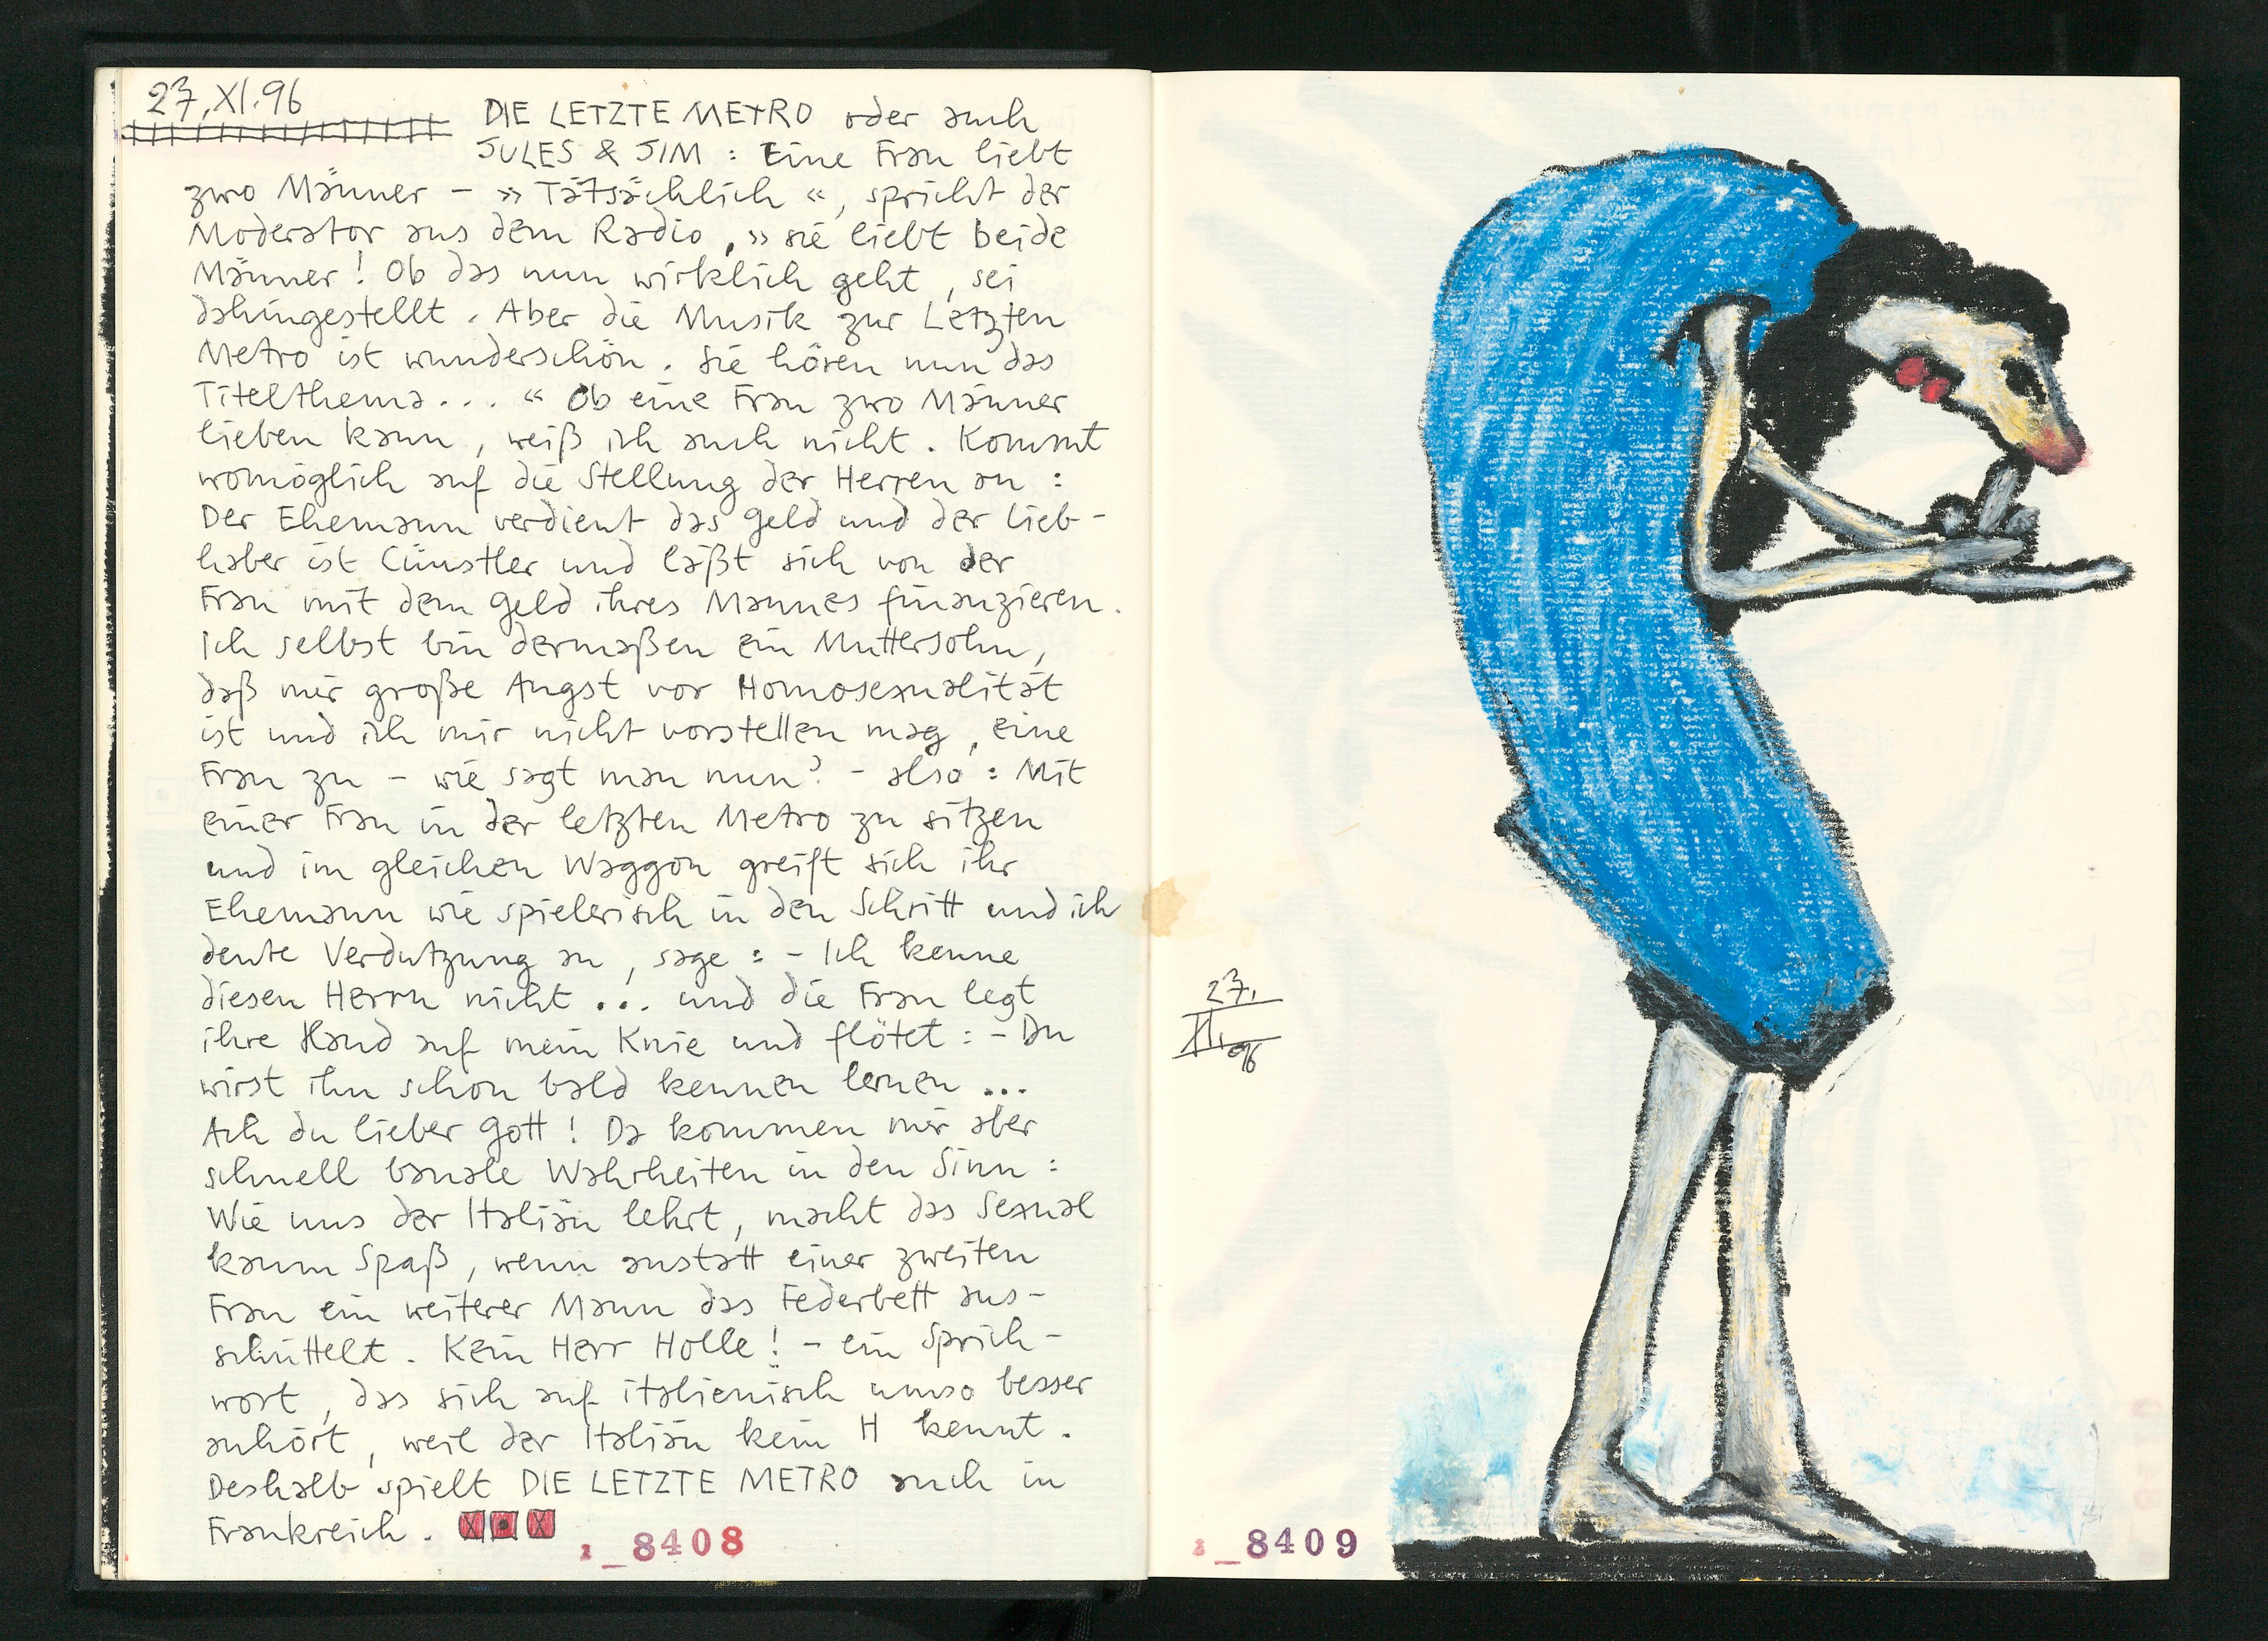 27.XI.96
DIE LETZTE METRO oder auch
JULES & JIM : Eine Frau liebt
zwo Männer – » Tatsächlich «, spricht der
Moderator aus dem Radio, » sie liebt beide
Männer ! Ob das nun wirklich geht, sei
dahingestellt. Aber die Musik zur Letzten
Metro ist wunderschön. Sie hören nun das
Titelthema... « Ob eine Frau zwo Männer
lieben kann, weiß ich auch nicht. Kommt
womöglich auf die Stellung der Herren an :
Der Ehemann verdient das Geld und der Lieb-
haber ist Cünstler und läßt sich von der
Frau mit dem Geld ihres Mannes finanzieren.
Ich selbst bin dermaßen ein Muttersohn,
daß mir große Angst vor Homosexualität
ist und ich mir nicht vorstellen mag, eine
Frau zu – wie sagt man nun? – also : Mit
einer Frau in der letzten Metro zu sitzen
und im gleichen Waggon greift sich ihr
Ehemann wie spielerisch in den Schritt und ich
deute Verdutzung an, sage : – Ich kenne
diesen Herrn nicht ... und die Frau legt
ihre Hand auf mein Knie und flötet : – Du
wirst ihn schon bald kennen lernen ...
Ach du lieber Gott ! Da kommen mir aber
schnell banale Wahrheiten in den Sinn :
Wie uns der Italiän lehrt, macht das Sexual
kaum Spaß, wenn anstatt einer zweiten
Frau ein weiterer Mann das Federbett aus-
schüttelt. Kein Herr Holle ! – ein Sprich-
wort, das sich auf italienisch umso besser
anhört, weil der Italiän kein H kennt.
Deshalb spielt DIE LETZTE METRO auch in
Frankreich.
_8408
27.
XI.
96
_8409